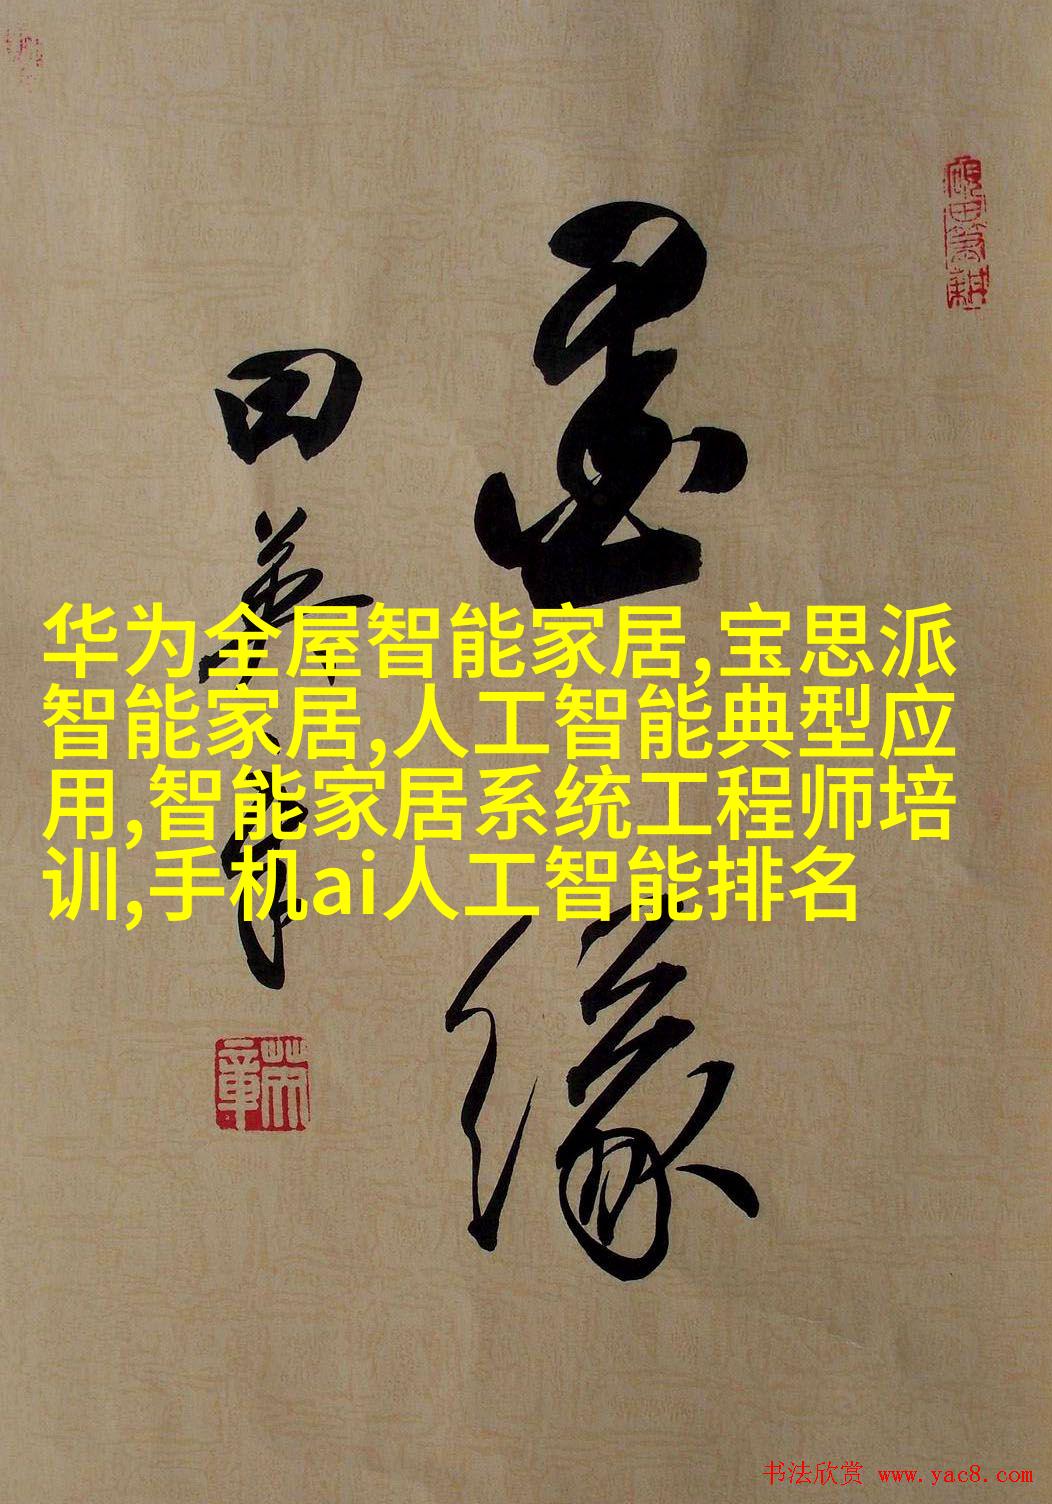 墨缘
田英章
华为全屋智能家居,宝思派
智能家居,人工智能典型应
用,智能家居系统工程师培
训,手机ai人工智能排名
书法欣赏 www.yac8.com